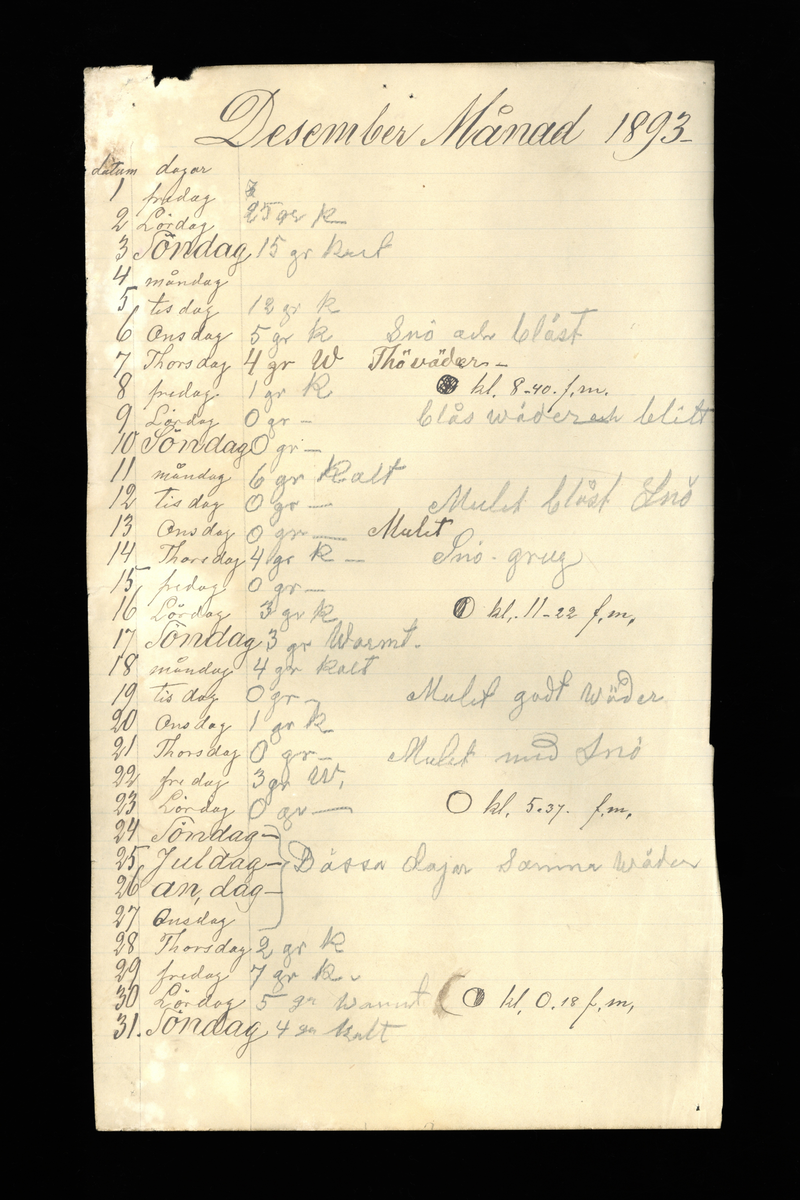 Desember Månad 1893
datum dagar
1 fredag
2 Lördag 25 gr k
3 Söndag 15 gr kalt
4 måndag
5 tisdag 12 gr k
6 Onsdag 5 gr k Snö och blåst
7 Thorsdag 4 gr W Thöväder
8 fredag 1 gr k kl. 8-40. f.m.
9 Lördag 0 gr - blås wäder och blitt
10 Söndag 0 gr -
11 måndag 6 gr Kalt
12 tisdag 0 gr - Mulet blåst Snö
13 Onsdag 0 gr - Mulet
14 Thorsdag 4 gr k - Snö-
15 fredag 0 gr -
16 Lördag 3 gr k kl. 11-22 f.m.
17 Söndag 3 gr Warmt.
18 måndag 4 gr kalt
19 tisdag 0 gr - Mulet godt Wäder
20 Onsdag 1 gr k
21 Thorsdag 0 gr - Mulet med Snö
22 fredag 3 gr W.
23 Lördag 0 gr - kl. 5.37. f.m.
24 Söndag-
25 Juldag- Dässa dajar Samma Wäder
26 an, dag-
27 Onsdag
28 Thorsdag 2 gr k
29 fredag 7 gr k -
30 Lördag 5 gr warmt kl. 0.18 f.m,
31. Söndag 4 gr kalt